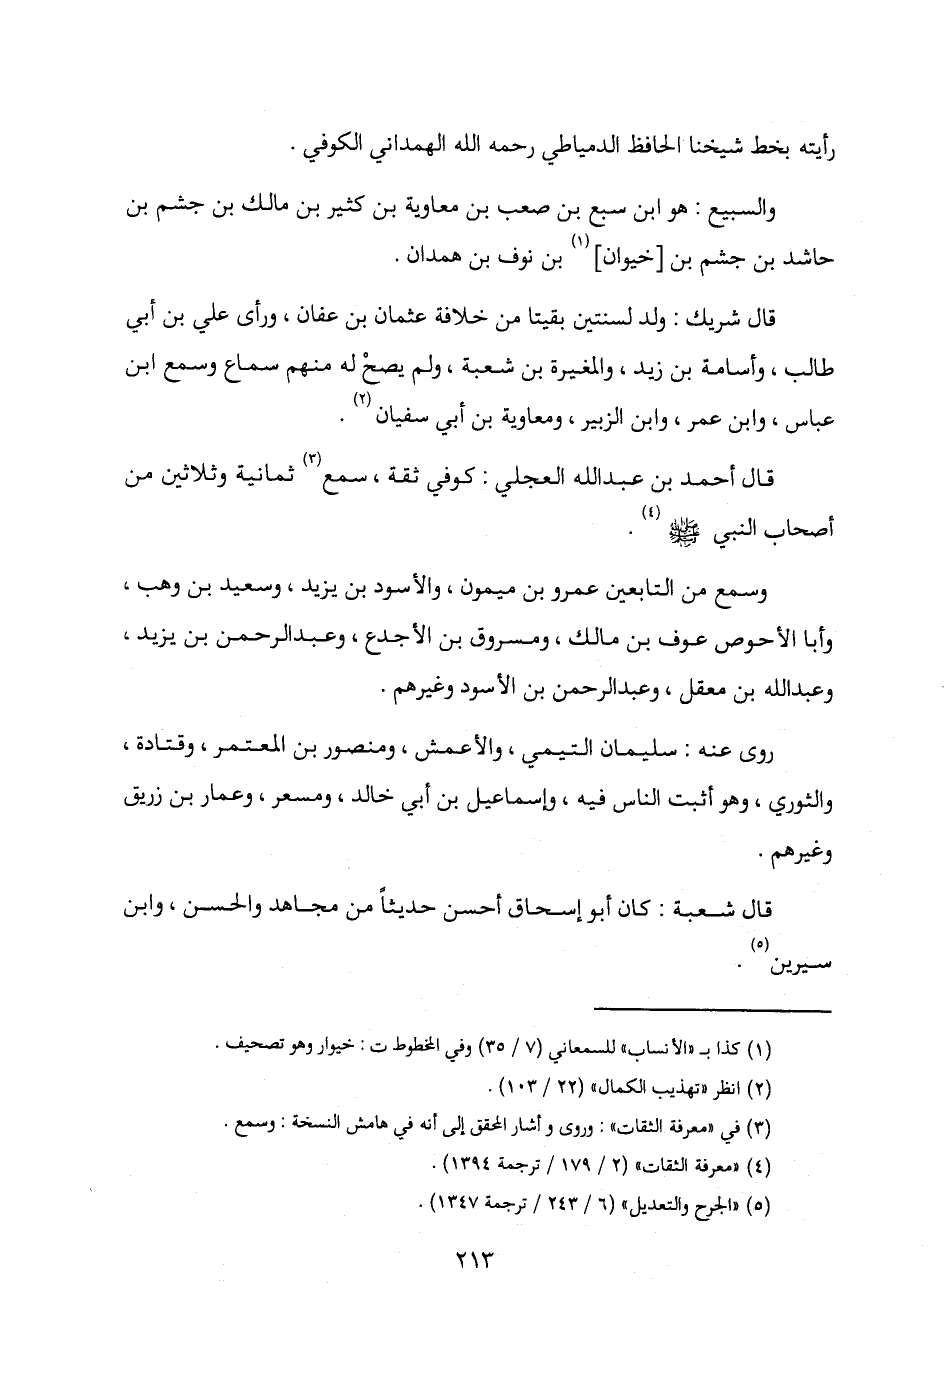 رأيته بخط شيخنا الحافظ الدمياطي رحمه الله الهمداني الكوفي .
والسبيع : هو ابن سبع بن صعب بن معاوية بن كثير بن مالك بن جشم بن
حاشد بن جشم بن [خيوان] (١) بن نوف بن همدان .
قال شريك : ولد لسنتين بقيتا من خلافة عثمان بن عفان ، ورأى علي بن أبي
طالب ، وأسامة بن زيد ، والمغيرة بن شعبة ، ولم يصحْ له منهم سماع وسمع ابن
عباس ، وابن عمر ، وابن الزبير ، ومعاوية بن أبي سفيان (٢) .
قال أحمد بن عبدالله العجلي : كوفي ثقة ، سمع (٣) ثمانية وثلاثين من
أصحاب النبي ﷺ (٤) .
وسمع من التابعين عمرو بن ميمون ، والأسود بن يزيد ، وسعيد بن وهب ،
وأبا الأحوص عوف بن مالك ، ومسروق بن الأجدع ، وعبدالرحمن بن يزيد ،
وعبدالله بن معقل ، وعبدالرحمن بن الأسود وغيرهم .
روى عنه : سليمان التيمي ، والأعمش ، ومنصور بن المعتمر ، وقتادة ،
والثوري ، وهو أثبت الناس فيه ، وإسماعيل بن أبي خالد ، ومسعر ، وعمار بن زريق
وغيرهم .
قال شعبة : كان أبو إسحاق أحسن حديثاً من مجاهد والحسن ، وابن
سيرين (٥) .
(١) كذا بـ «الأنساب» للسمعاني (٧ / ٣٥) وفي المخطوط ت : خيوار وهو تصحيف .
(٢) انظر «تهذيب الكمال» (٢٢ / ١٠٣) .
(٣) في «معرفة الثقات» : وروى و أشار المحقق إلى أنه في هامش النسخة : وسمع .
(٤) «معرفة الثقات» (٢ / ١٧٩ / ترجمة ١٣٩٤) .
(٥) «الجرح والتعديل» (٦ / ٢٤٣ / ترجمة ١٣٤٧) .
٢١٣